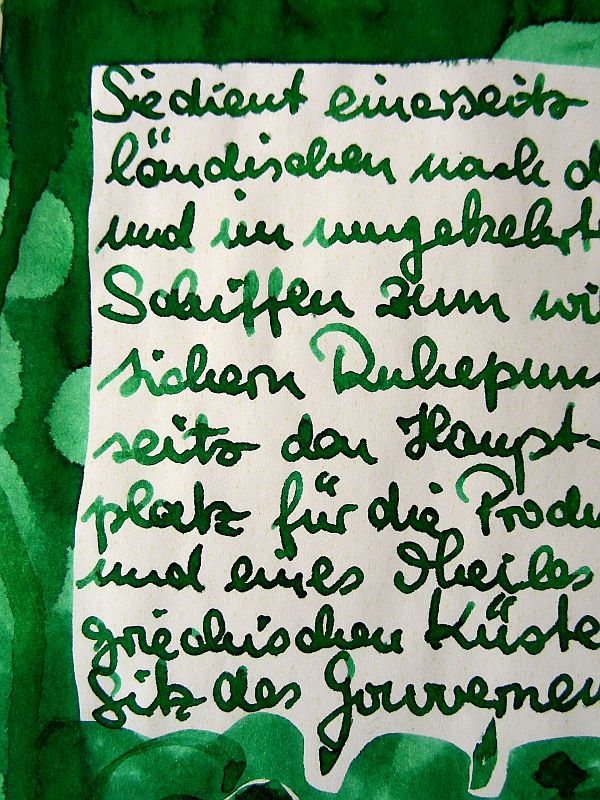 Sie dient einerseits
ländischen nach d
und im umgekehrt
Schiffen zum wi
sichern Ruhepun
seits den Haupt-
platz für die Produ
und eines Theiles
griechischen Küste
Sitz des Gouvernem